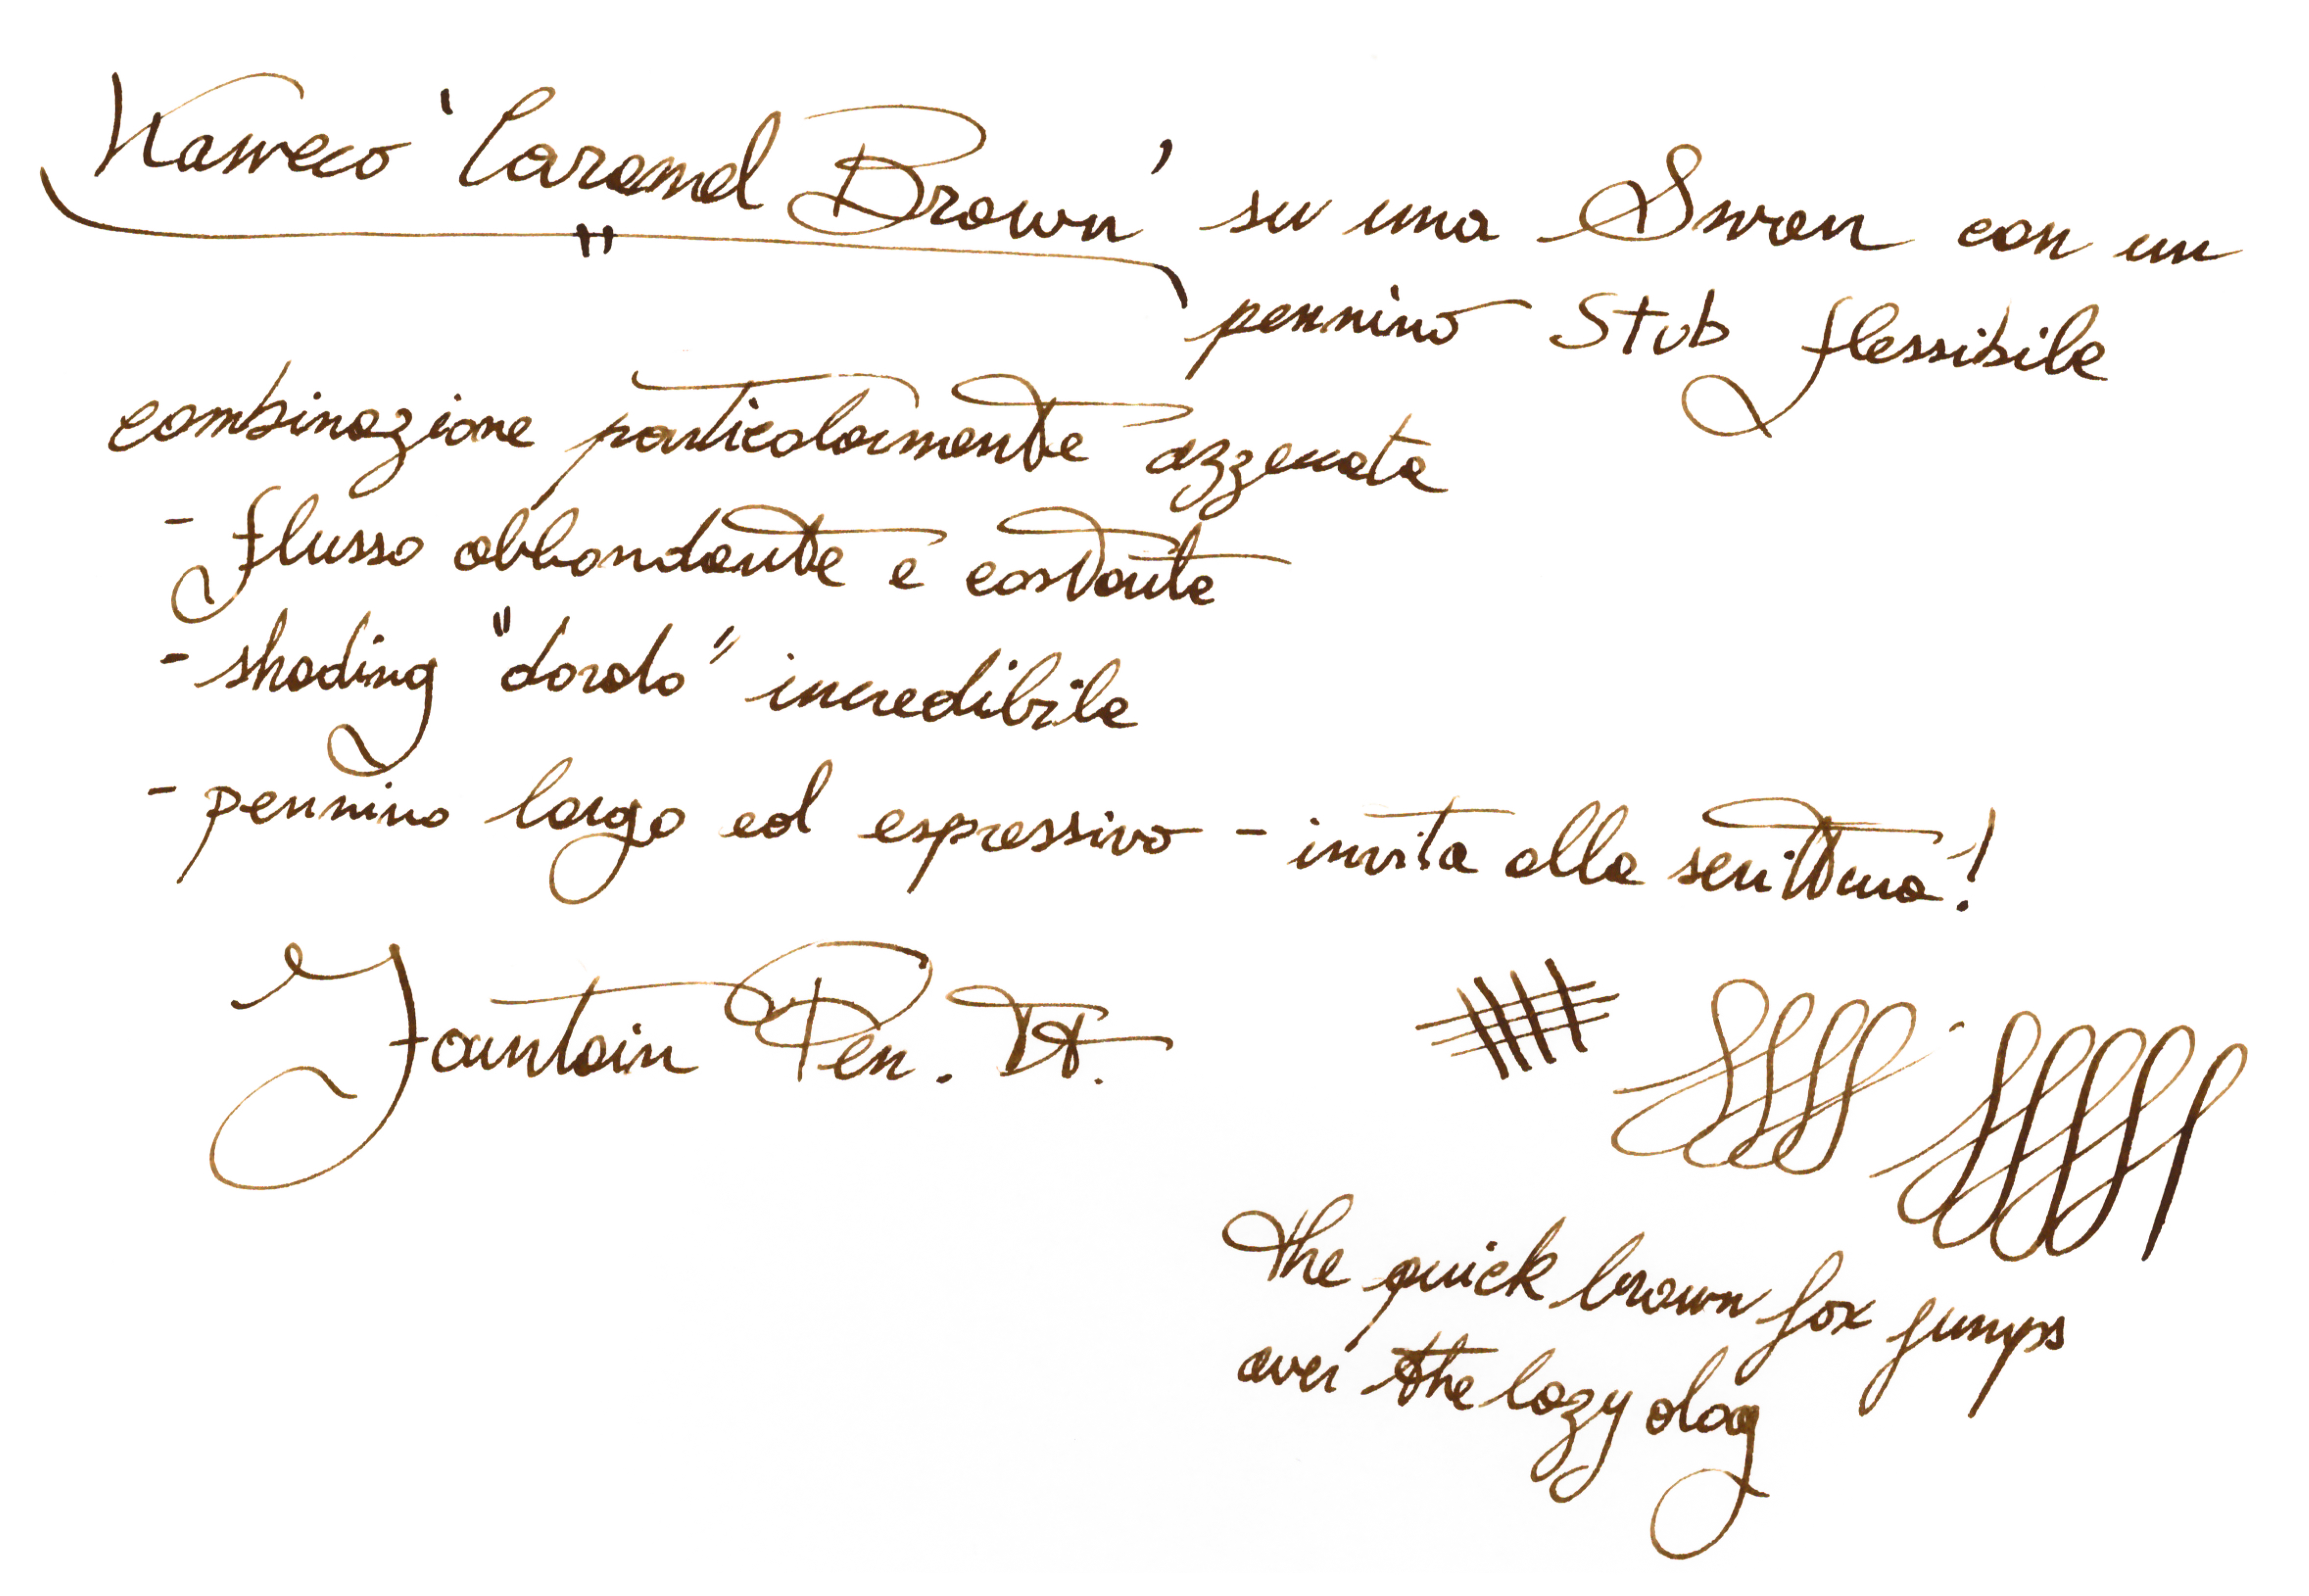 Kaweco 'Caramel Brown' su una Swan con un
pennino stub flessibile
combinazione particolarmente azzeccata
- flusso abbondante e costante
- shading "dorato" incredibile
- pennino largo ed espressivo - invita alla scrittura!
Fountain Pen. It.
The quick brown fox jumps
over the lazy dog